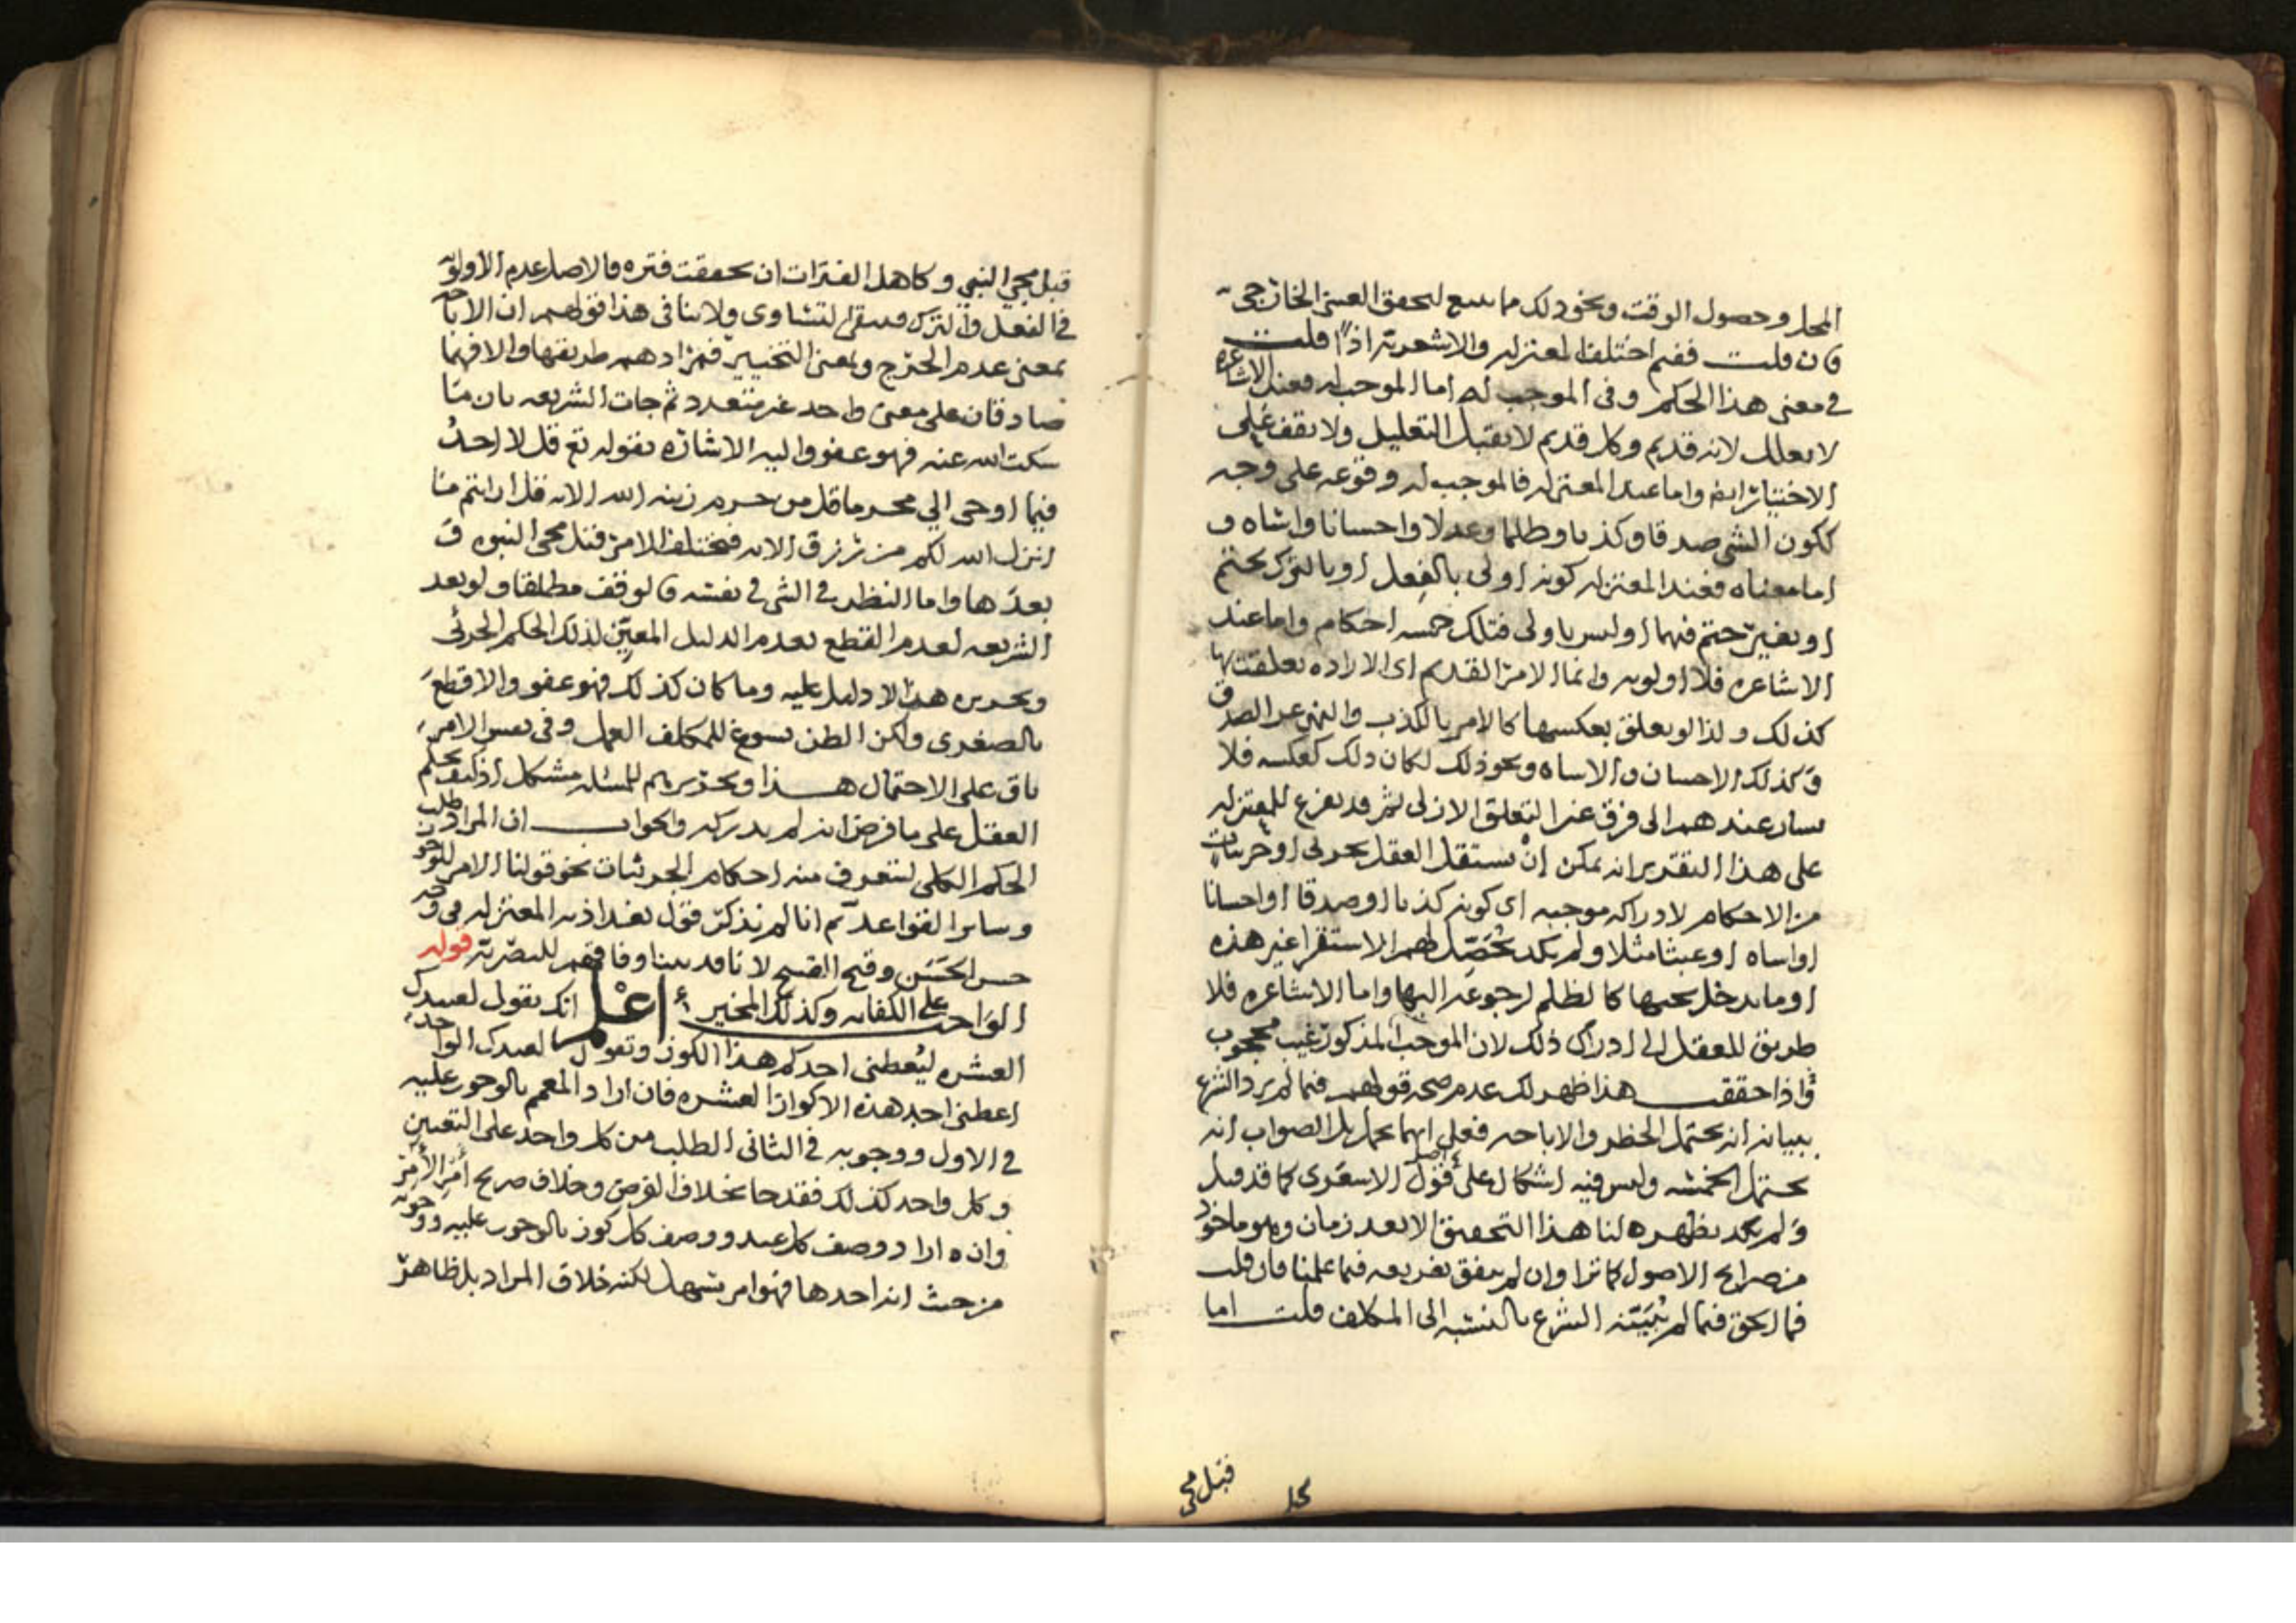 المحل وحصول الوقت ونحو ذلك مما يسع لتحقق العيني الخارجي
فان قلت ففيم اختلف المعتزله والاشعريه اذاً قلت
في معنى هذا الحكم وفي الموجب له اما الموجب له فعند الاشاعره
لا يعلل لانه قديم وكل قديم لا يقبل التعليل ولا يقف على
الاختيار ايضا واما عند المعتزله فالموجب له وقوعه على وجه
ككون الشي صدقا وكذبا وظلما وعدلا واحسانا واساه و
اما معناه فعند المعتزله كونه اولى بالفعل او بالترك بحتم
او بغير حتم فيهما او ليس باولى فتلك خمسه احكام واما عند
الاشاعره فلا اولويه وانما الامر القديم اي الاراده تعلقت بها
كذلك ولذا لو تعلق بعكسها كالامر بالكذب والنهي عن الصدق
وكذلك الاحسان والاساه ونحو ذلك لكان ذلك كعكسه فلا
يسار عندهم الى فرق غير التعلق الازلي ثم قد يفرع للمعتزله
على هذا التقرير انه يمكن ان يستقل العقل بجزئي او جزئيات
من الاحكام لادراكه موجبه اي كونه كذبا او صدقا او احسانا
او اساه او عبثا مثلا ولم يكد يُحَصِّل لهم الاستقرا غير هذه
او ما يدخل تحتها كالظلم لرجوعه اليها واما الاشاعره فلا
طريق للعقل الى ادراك ذلك لان الموجب المذكور غيب محجوب
واذا حققت هذا ظهر لك عدم صحه قولهم فيما لم يرد الشرع
ببيانه انه يحتمل الحظر والاباحه فعلى ايهما يحمل بل الصواب انه
يحتمل الخمسه وليس فيه اشكال على قول الاشعري كما قد قيل
ولم يكد يظهر لنا هذا التحقيق الا بعد زمان وهو ماخوذ
من صرايح الاصول كما ترا وان لم يتفق تفريعه فيما علمنا فان قلت
فما الحق فيما لم يُبَيّنه الشرع بالنسبه الى المكلف قلت اما
قبل مجي
قبل مجي النبي وكاهل الفترات ان تحققت فتره فالاصل عدم الاولويه
في الفعل والترك فيبقى التساوي ولا ينافي هذا قولهم ان الاباحه
بمعنى عدم الحرج وبمعنى التخيير فمرادهم طريقها والا فهما
صادقان على معنى واحد غير متعدد ثم جات الشريعه بان ما
سكت الله عنه فهو عفو واليه الاشاره بقوله تع قل لا اجدُ
فيما اوحي الي محرما قل من حرم زينه الله الايه قل ارايتم ما
انزل الله لكم من رزق الايه فيختلف الامر قبل مجي النبوه و
بعدها واما النظر في الشي في نفسه فالوقف مطلقا ولو بعد
الشريعه لعدم القطع بعدم الدليل المعيّن لذلك الحكم الجزئي
وتحريره هذا لا دليل عليه وما كان كذلك فهو عفو والا قطع
بالصغرى ولكن الظن يسوغ للمكلف العمل وفي نفس الامر
باق على الاحتمال هذا وتحريرهم للمسئله مشكل اذ كيف يحكم
العقل على ما فرض انه لم يدركه والجواب ان المراد طلب
الحكم الكلي لتعرف منه احكام الجزئيات نحو قولنا الامر للوجوب
وساير القواعد ثم انا لم نذكر قول بغداذيه المعتزله في وجه
حسن الحَسَن وقبح القبيح لانا قد بينا وفاقهم للبصريه قوله
الواجب على الكفايه وكذلك المخير اعْلم انك تقول لعبيدك
العشره ليُعطني احدكم هذا الكوز وتقول لعبدك الواحد
اعطني احد هذه الاكواز العشره فان اراد المعمم بالوجوب عليه
في الاول ووجوبه في الثاني الطلب من كل واحد على التعيين
وكل واحد كذلك فقد جا بخلاف الفرض وخلاف صريح امر الآمر
وان اراد وصف كل عبد ووصف كل كوز بالوجوب عليه ووجوبه
من حيث انه احدها فهو امر سهل لكنه خلاف المراد بل ظاهر